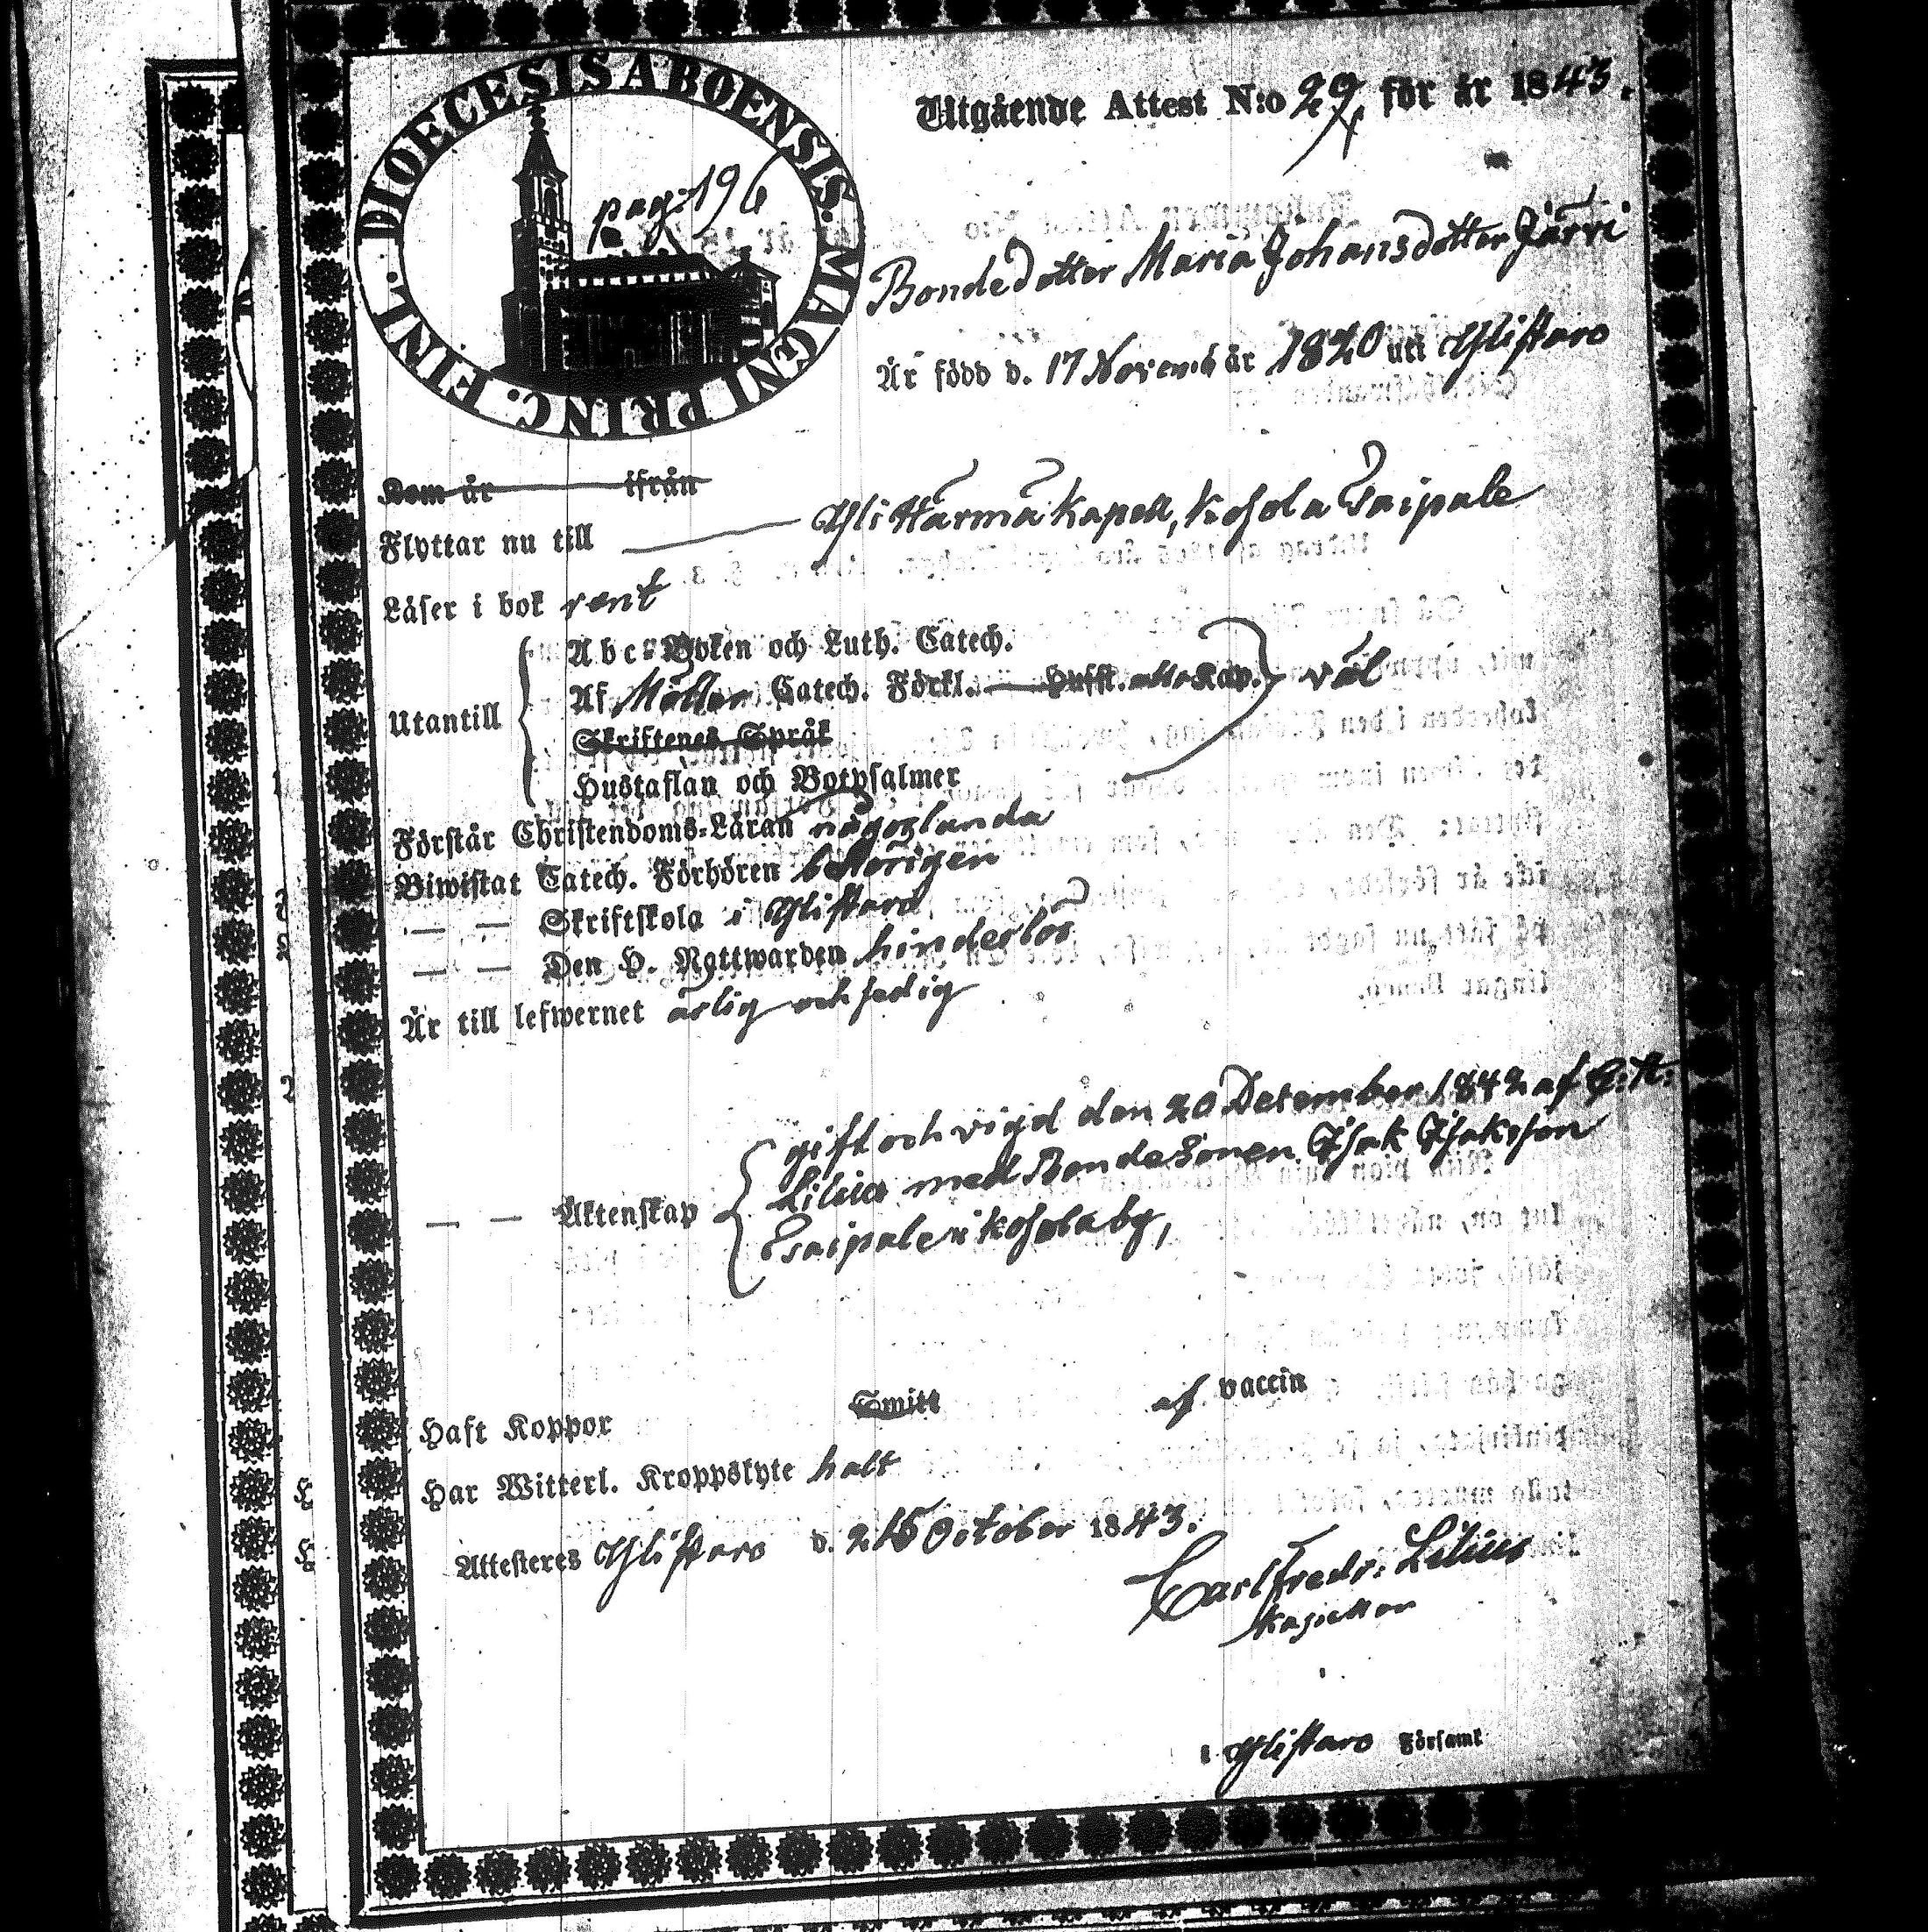 DIOECESIS ABOENSIS. MAGNI PRINC. FINL.
pag: 196
Utgående Attest N:o 29. för år 1843.
Bondedotter Maria Johansdotter Järri
Är född d. 17 Novemb år 1820 uti Ylistaro
Kom år ifrån
Flyttar nu till Yli Härmä Kapell, Kosola Tsaipale
Läser i bok rent
Utantill
Abc-Boken och Luth. Catech.
Af Möller Catech. Förkl. Hufst. Kap. väl
Skriftenes Språk
Hustaflan och Botpsalmer
Förstår Christendoms-Läran någorlunda
Biwistat Catech. Förhören behörigen
— — Skriftskola i Ylistaro
— — Den H. Nattwarden hinderlös
Är till lefwernet ärlig och sedig
— — Äktenskap
gift och vigd den 20 December 1842 af C: A:
Lilius med Bondesonen Isak Isaksson
Tsaipale i Kosola by,
Haft Koppor Smitt af vaccin
Har Witterl. Kroppslyte halt
Attesteres Ylistaro d. October 1843.
Carl Fredr: Lilius
i Ylistaro Församl